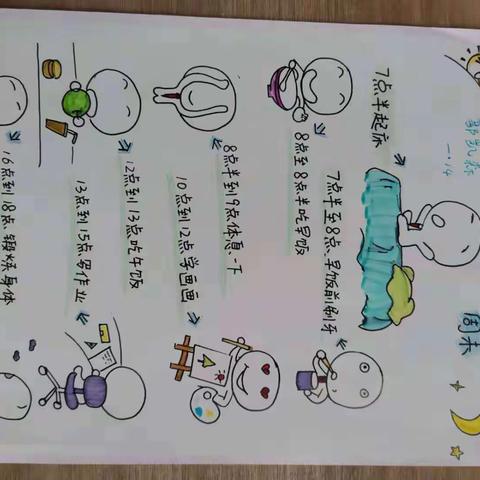 周末
郭凯
一·14
7点半起床
7点半至8点,早饭前刷牙
8点至8点半吃早饭
8点半到9点休息一下
10点到12点学画画
12点到13点吃午饭
13点到15点写作业
16点到18点锻炼身体